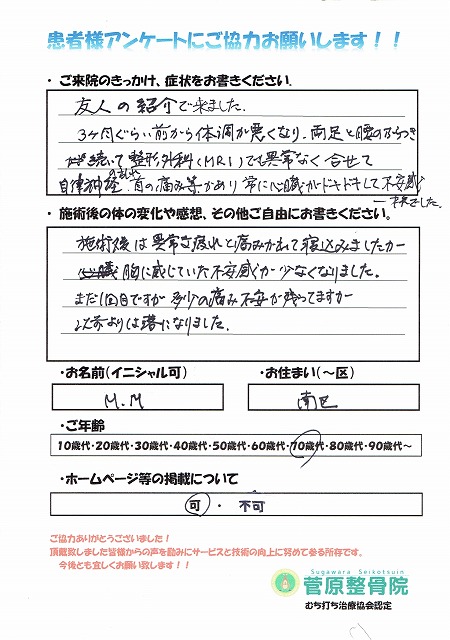 患者様アンケートにご協力お願いします！！
・ご来院のきっかけ、症状をお書きください。
友人の紹介で来ました。
3ヶ月ぐらい前から体調が悪くなり、両足と腰のふらつき
が続いて整形外科(MRI)でも異常なく合せて
自律神経の乱れ 首の痛み等があり常に心臓がドキドキして不安感
で来ました。
・施術後の体の変化や感想、その他ご自由にお書きください。
施術後は異常な疲れと痛みがあって寝込みましたが
胸に感じていた不安感が少なくなりました。
まだ1回目ですが多少の痛み不安が残ってますが
以前よりは楽になりました。
・お名前(イニシャル可)
・お住まい(～区)
M.M
南区
・ご年齢
10歳代・20歳代・30歳代・40歳代・50歳代・60歳代・70歳代・80歳代・90歳代～
・ホームページ等の掲載について
可 ・ 不可
ご協力ありがとうございました！
頂戴致しました皆様からの声を励みにサービスと技術の向上に努めて参る所存です。
今後とも宜しくお願い致します！！
Sugawara Seikotsuin
菅原整骨院
むち打ち治療協会認定